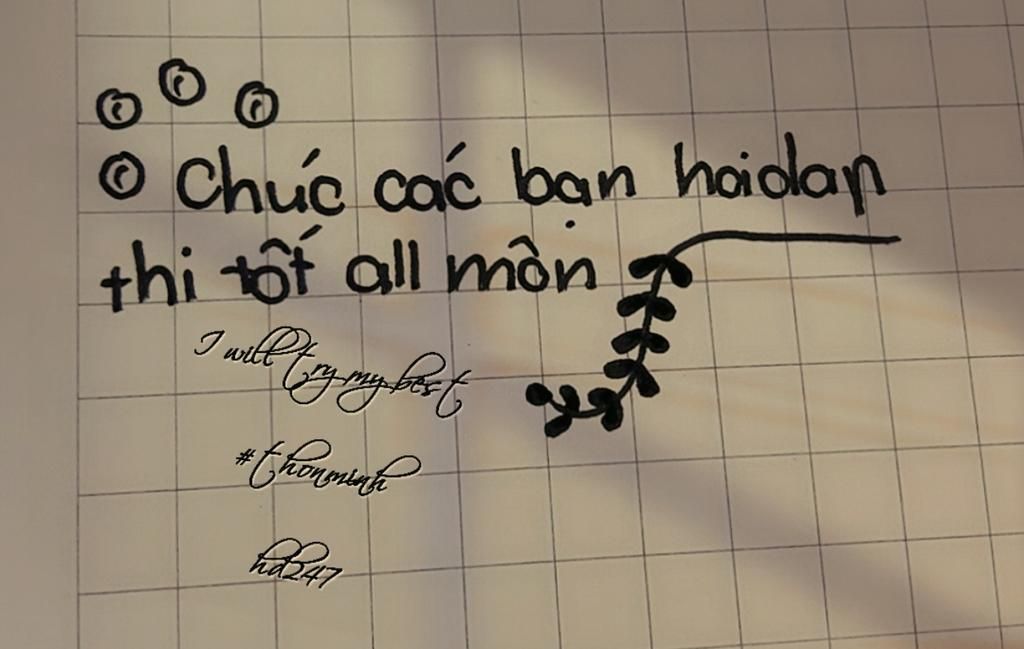 Chúc các bạn hoidap
thi tốt all môn
I will try my best
#thonminh
hd247